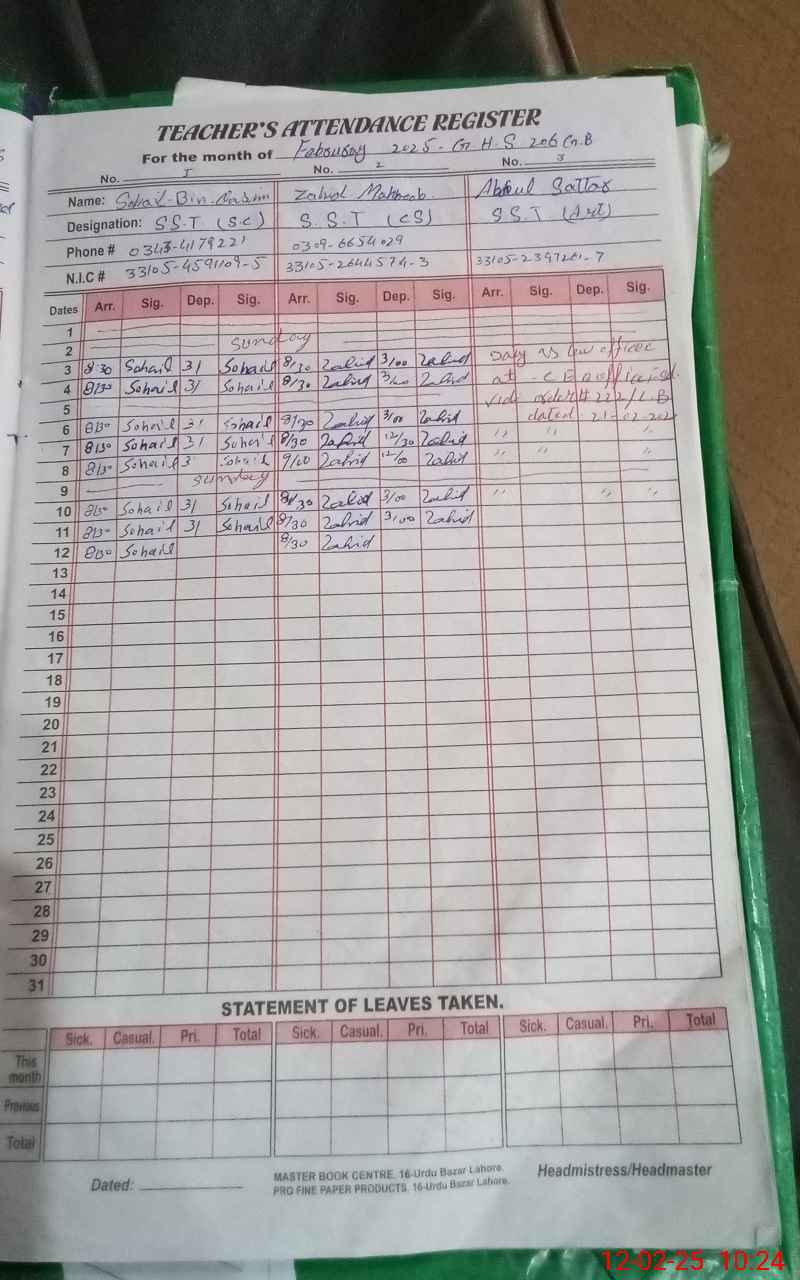 TEACHER'S ATTENDANCE REGISTER
For the month of Fabouary 2025 - G.H.S 206 G.B
No. 1 No. 2 No. 3
Name: Sohail-Bin-Qasim Zahid Mahboob. Abdul Sattar
Designation: S.S.T (S.C) S.S.T (CS) S.S.T (Art)
Phone # 0343-4179221 0309-6654029
N.I.C # 33105-4591109-5 33105-2644574-3 33105-2397261-7
Dates Arr. Sig. Dep. Sig. Arr. Sig. Dep. Sig. Arr. Sig. Dep. Sig.
1
2 Sunday
3 8/30 Sohail 3/ Sohail 8/30 Zahid 3/00 Zahid officer
4 8/30 Sohail 3/ Sohail 8/30 Zahid 3/00 Zahid at CEO office
5 order # 222/L.B
6 8/30 Sohail 3/ Sohail 8/30 Zahid 3/00 Zahid dated 21-02-202
7 8/30 Sohail 3/ Sohail 8/30 Zahid 12/30 Zahid " " "
8 8/30 Sohail 3 Sohail 9/00 Zahid 12/00 Zahid " " "
9 Sunday
10 8/30 Sohail 3/ Sohail 8/30 Zahid 3/00 Zahid " " "
11 8/30 Sohail 3/ Sohail 8/30 Zahid 3/00 Zahid
12 8/30 Sohail 8/30 Zahid
13
14
15
16
17
18
19
20
21
22
23
24
25
26
27
28
29
30
31
STATEMENT OF LEAVES TAKEN.
Sick. Casual. Pri. Total Sick. Casual. Pri. Total Sick. Casual. Pri. Total
This month
Previous
Total
Dated:
MASTER BOOK CENTRE. 16-Urdu Bazar Lahore.
PRO FINE PAPER PRODUCTS. 16-Urdu Bazar Lahore.
Headmistress/Headmaster
12-02-25 10:24